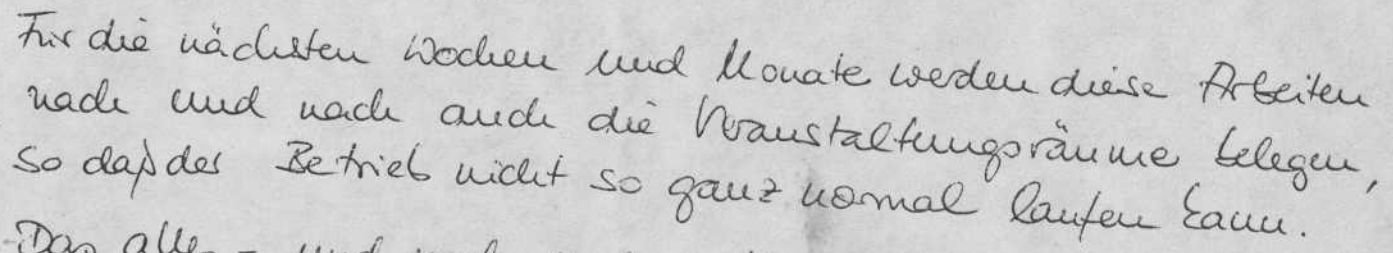 Für die nächsten Wochen und Monate werden diese Arbeiten
nach und nach auch die Veranstaltungsräume belegen,
so daß der Betrieb nicht so ganz normal laufen kann.
Das alles - und noch